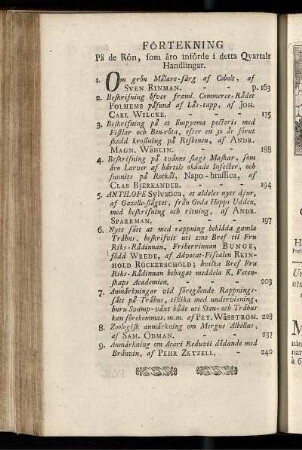 FÖRTEKNING
På de Rön, som äro införde i detta Qvartals
Handlingar.
1. Om grön Målare-färg af Cobolt, af
SVEN RINMAN. - p. 163
2. Beskrifning öfver framl. Commerce-Rådet
POLHEMS påfund af Lås-tapp, af JOH.
CARL WILCKE. - 175
3. Beskrifning på et Empyema pectoris med
Fistlar och Ben-röta, efter en 30 år förut
skedd krossning på Refbenen, af ANDR.
MAGN. WÅHLIN. - 188
4. Beskrifning på tvänne slags Maskar, som
äro Larver af hårtils okände Insecter, och
funnits på Rotkål, Napo-brassica, af
CLAS BJERKANDER. - 194
5. ANTILOPE Sylvatica, et aldeles nytt djur,
af Gazelle-slägtet, från Goda Hopps Udden,
med beskrifning och ritning, af ANDR.
SPARRMAN. - 197
6. Nytt sätt at med rappning bekläda gamla
Trähus, beskrifvit uti et Bref til Fru
Riks-Rådinnan, Friherrinnan BUNGE,
född WREDE, af Advocat-Fiscalen REIN-
HOLD RÜCKERSCHÖLD; hvilka Bref Fru
Riks-Rådinnan behagat meddela K. Vetens-
skaps Academien. - 203
7. Anmärkningar vid föregående Rappnings-
sätt på Trähus, tillika med undervisning,
huru Svamp-växt både uti Sten- och Trähus
kan förekommas, m.m. af PET. WÄSSTRÖM. - 228
8. Zoologisk anmärkning om Mergus Albellus,
af SAM. ÖDMAN. - 237
9. Anmärkning om Acari Reduvii dödande med
Bränvin, af PEHR ZETZELL. - 240